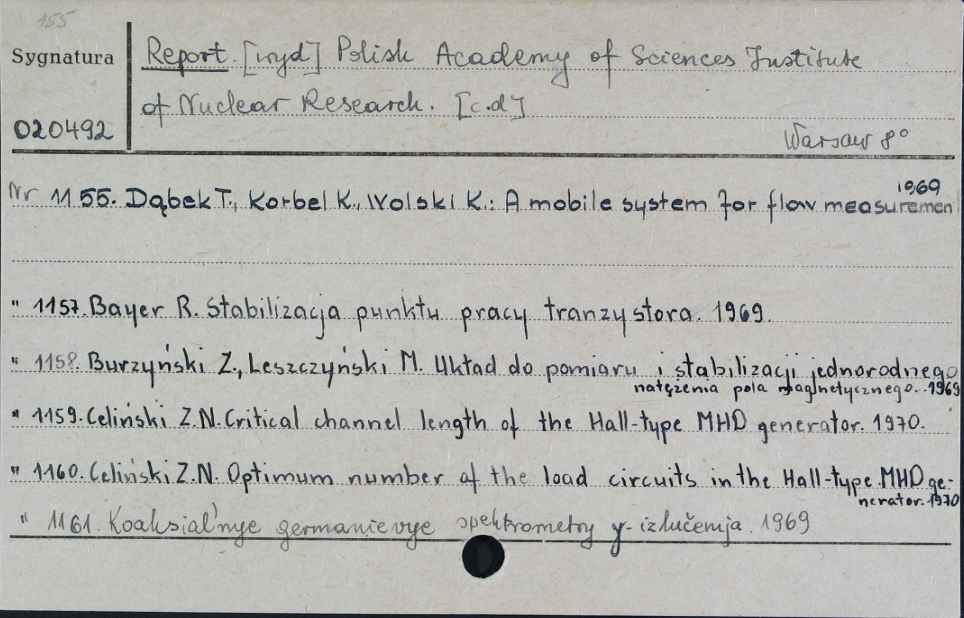 155
Sygnatura
Report [wyd] Polish Academy of Sciences Institute
of Nuclear Research. [c.d]
020492
Warsaw 8°
Nr 1155. Dąbek T., Korbel K., Wolski K.: A mobile system for flow measuremen 1969
" 1157. Bayer R. Stabilizacja punktu pracy tranzystora. 1969.
" 1158. Burzyński Z., Leszczyński M. Układ do pomiaru i stabilizacji jednorodnego
natężenia pola magnetycznego. 1969
" 1159. Celiński Z.N. Critical channel length of the Hall-type MHD generator. 1970.
" 1160. Celiński Z.N. Optimum number of the load circuits in the Hall-type MHD ge-
nerator. 1970
" 1161. Koaksial'nye germanievye spektrometry γ-izlučenija. 1969